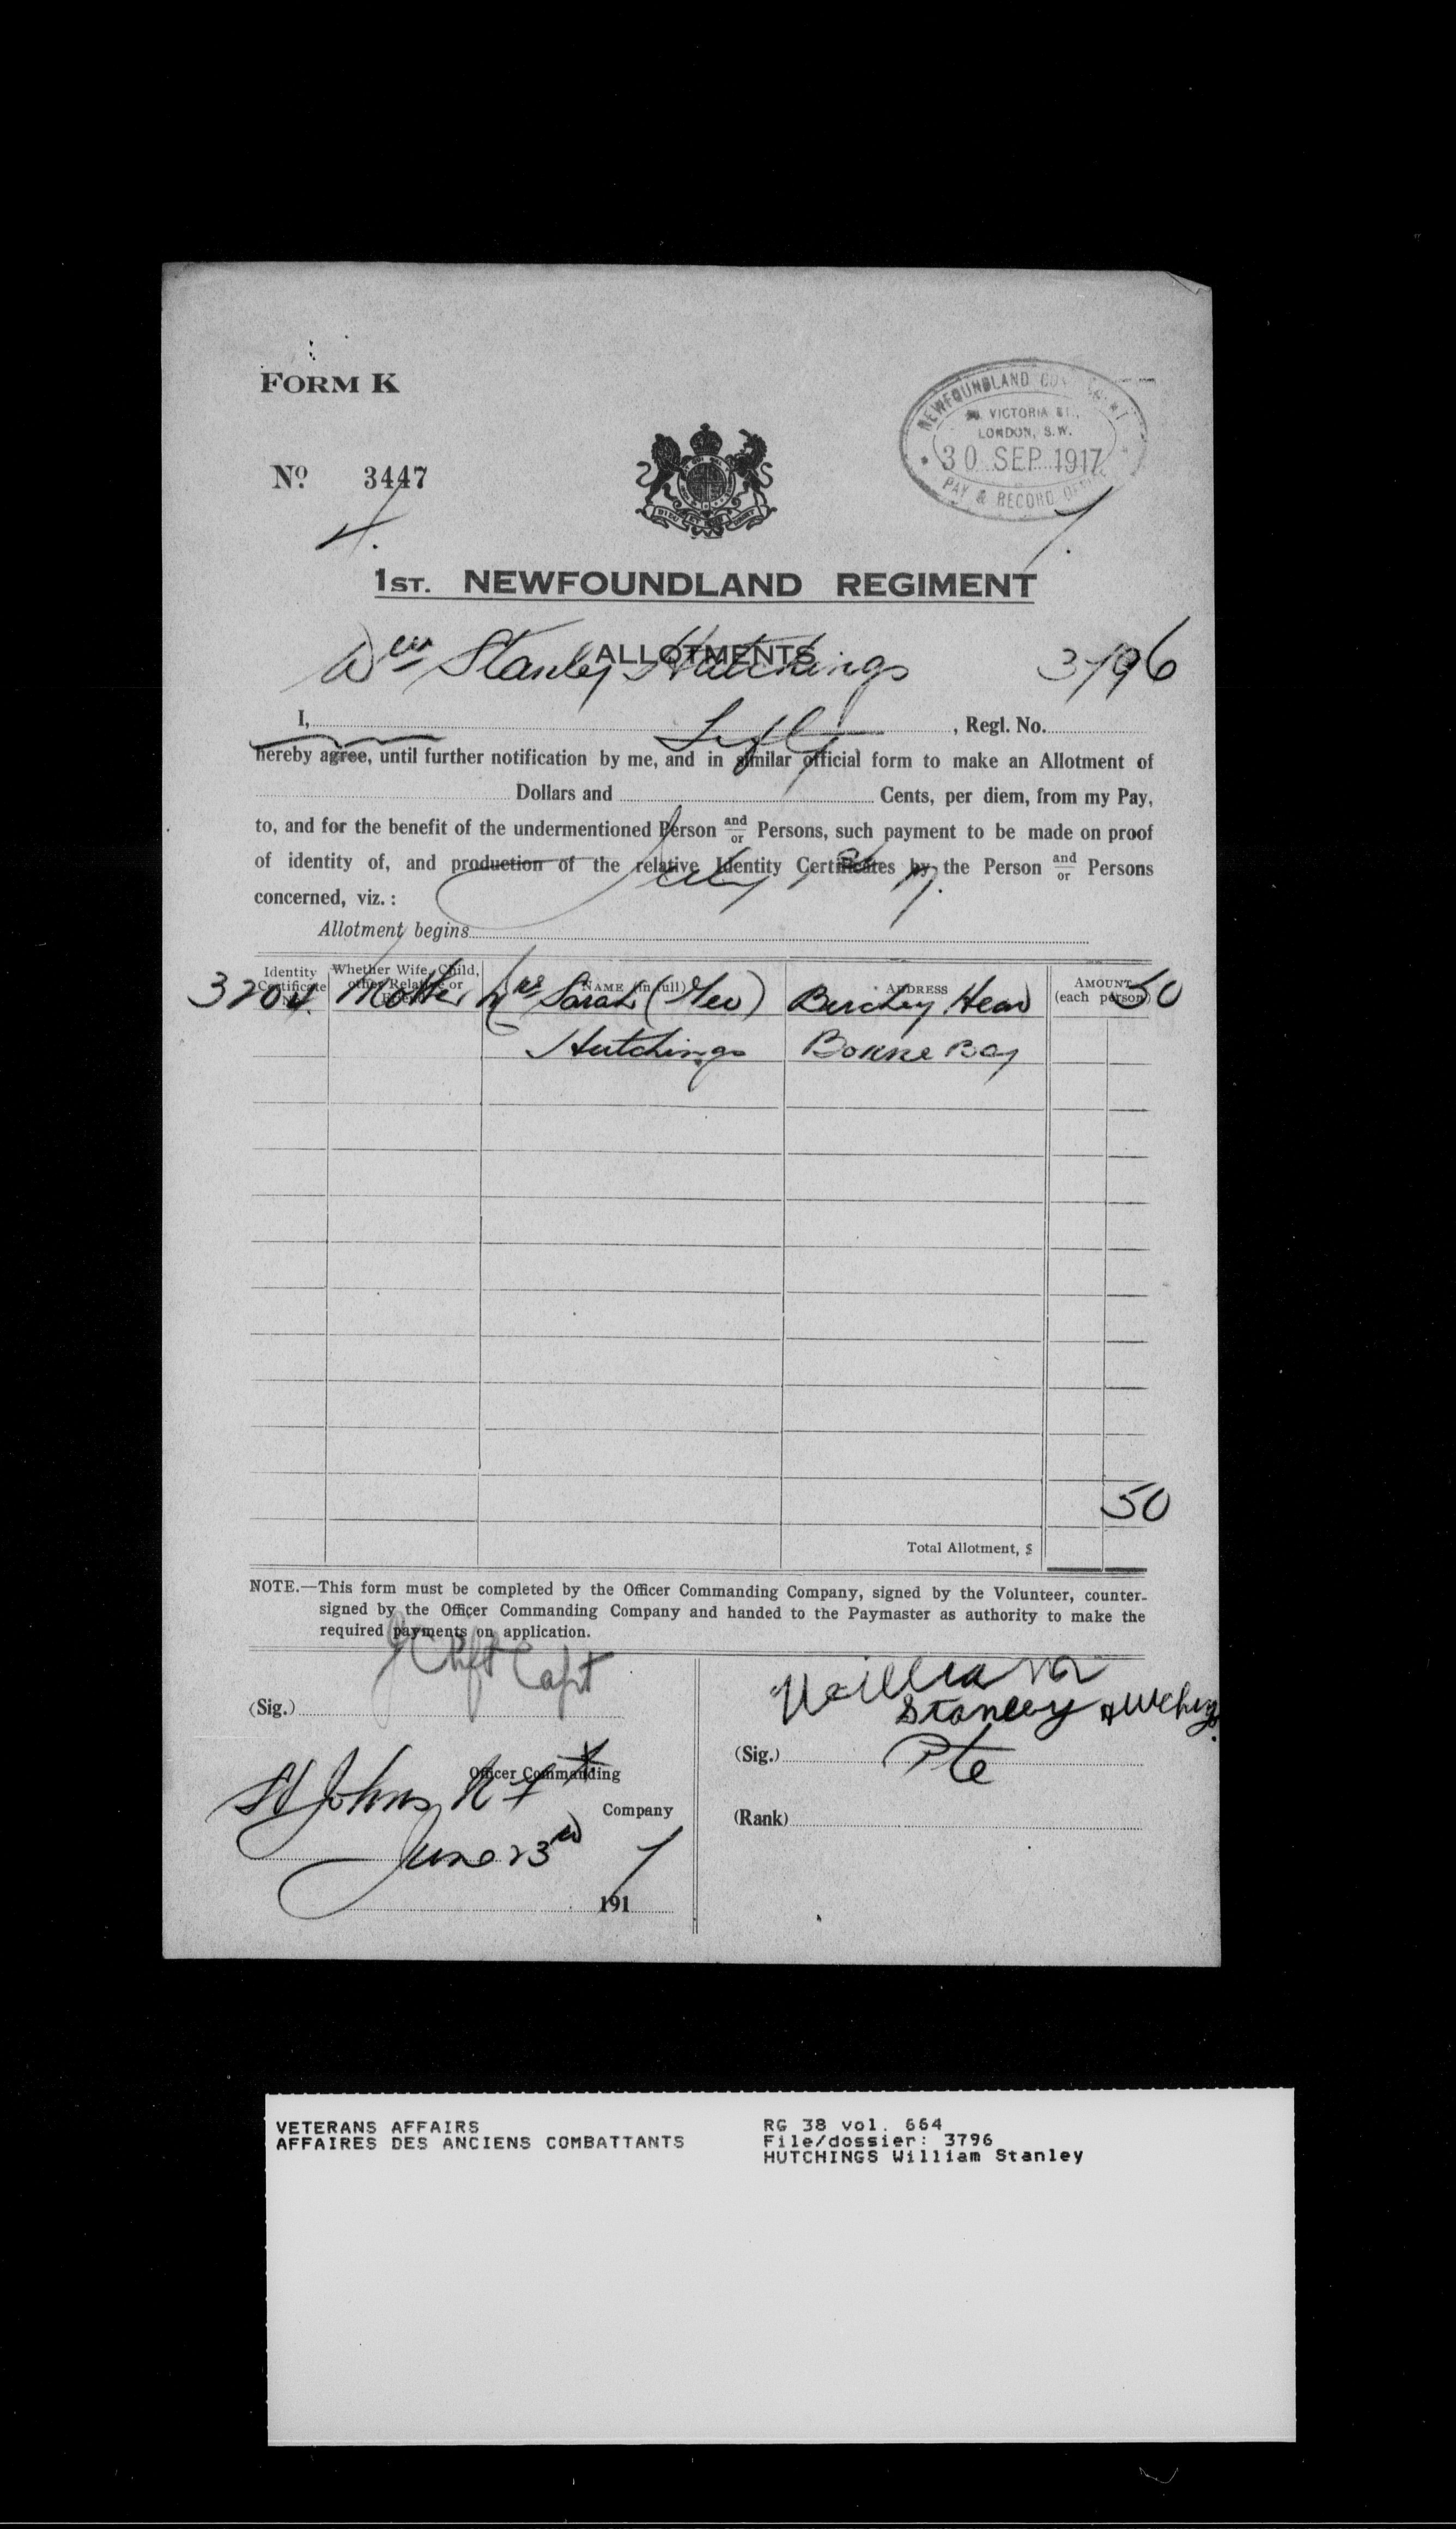 FORM K
NEWFOUNDLAND
VICTORIA ST.,
LONDON, S.W.
30 SEP 1917
PAY & RECORD OFFICE
Nº 3447
DIEU ET MON DROIT
1ST. NEWFOUNDLAND REGIMENT
ALLOTMENTS
Wm Stanley Hutchings 3796
I, , Regl. No.
Fifty
hereby agree, until further notification by me, and in similar official form to make an Allotment of
Dollars and Cents, per diem, from my Pay,
to, and for the benefit of the undermentioned Person and/or Persons, such payment to be made on proof
of identity of, and production of the relative Identity Certificates by the Person and/or Persons
concerned, viz. :
July 1st 17.
Allotment begins
Identity Certificate No. Whether Wife, Child, other Relative or Friend NAME (in full) ADDRESS AMOUNT (each person)
3204. Mother Mrs Sarah (Geo) Birchy Head 50
Hutchings Bonne Bay
50
Total Allotment, $
NOTE.—This form must be completed by the Officer Commanding Company, signed by the Volunteer, counter-
signed by the Officer Commanding Company and handed to the Paymaster as authority to make the
required payments on application.
J Clift Capt
(Sig.)
Officer Commanding
Company
St Johns Nfd
June 23rd 7
191
William
Stanley Hutchings
(Sig.)
Pte
(Rank)
VETERANS AFFAIRS
AFFAIRES DES ANCIENS COMBATTANTS
RG 38 vol. 664
File/dossier: 3796
HUTCHINGS William Stanley